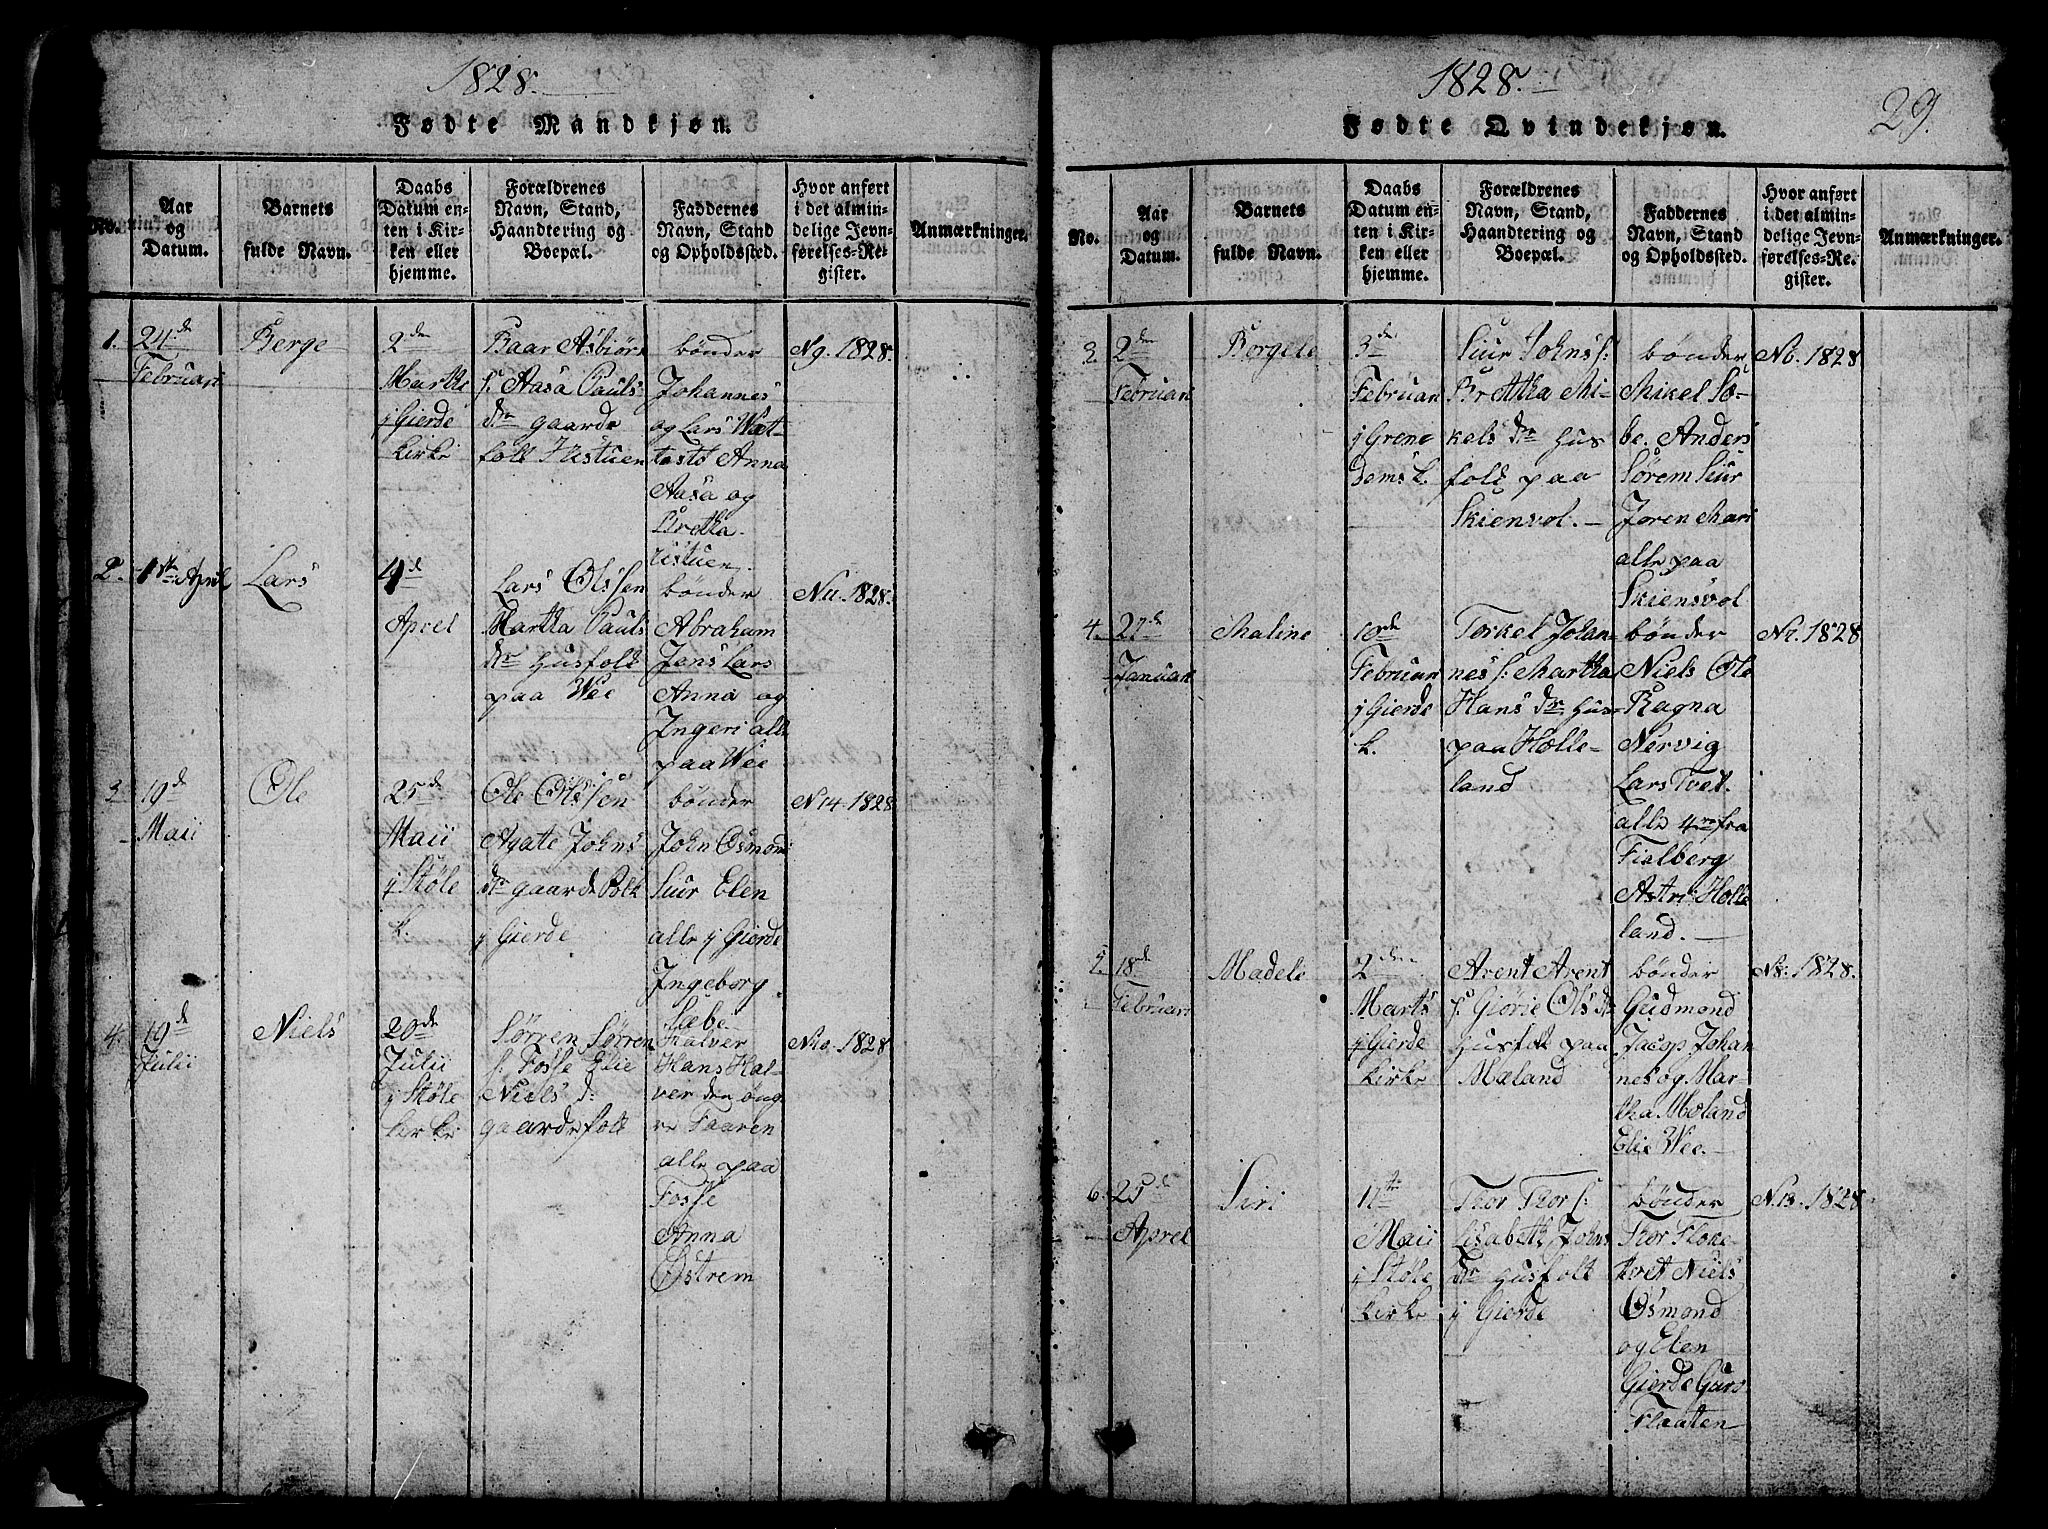 1828.
Fødte Mandkjøn.
No.
Aar
og
Datum.
Barnets
fulde Navn.
Daabs
Datum en-
ten i Kir-
ken eller
hjemme.
Forældrenes
Navn, Stand,
Haandtering og
Boepæl.
Faddernes
Navn, Stand
og Opholdssted.
Hvor anført
i det almin-
delige Jevn-
førelses-Re-
gister.
Anmærkninger.
1.
24de
Februari
Berge
2den
Marthe
j Gierde
kirke
Baar Asbiørs
s: Aasa Pauls
dr gaarde
folk Ústuen
bønder
Johannes
og Lars Wat-
testø Anna
Aasa og
Bretha
Ustuen
N9. 1828.
2.
1ste April
Lars
4de
Aprel
Lars Olssen
Martha Pauls
dr husfolk
paa Wee
bønder
Abraham
Jens Lars
Anna og
Ingeri alle
paa Wee
N11. 1828.
3
19de
Maii
Ole
25de
Maii
j Støle
k.
Ole Olssen
Agate Johns
dr gaarde folk
j Gierde
bønder
John Osmond
Siur Elen
alle j Gierde
Ingeborg
Sæbe
N14. 1828.
4.
19de
Julii
Niels
20de
Julii
j Støle
kirke
Sørren Sørren
s: Fosse Elie
Niels d:
gaardefolk
Halver
Hans Hal-
ver den øng
re Faaren
alle paa
Fosse
Anna
Østrem
1828.
29.
Fødte Qvindekjøn.
No.
Aar
og
Datum.
Barnets
fulde Navn.
Daabs
Datum en-
ten i Kir-
ken eller
hjemme.
Forældrenes
Navn, Stand,
Haandtering og
Boepæl.
Faddernes
Navn, Stand
og Opholdssted.
Hvor anført
i det almin-
delige Jevn-
førelses-Re-
gister.
Anmærkninger.
3.
2den
Februari
Borgele
3de
Februari
j Grene
dems k.
Siur Johns s:
Bretha Mi-
kels dr hus
folk paa
Skienvol.
bønder
Mikel Sø-
be. Anders
Sørem Siur
Joren Mari
alle paa
Skiensvol
N6. 1828
4.
27de
Januari
Maline
10de
Februar
j Gierde
k.
Torkel Johan-
nes s: Martha
Hans dr hus
paa Hølle-
land
bønder
Niels Ole
Ragna
Nervig
Lars Tvet.
alle 4re fra
Fielberg
Astri Hølle
land.
N7. 1828
5.
18de
Februari
Madele
2den
Marts
j Gierde
kirke
Arent Arent
s: Giørie Ols dr
husfolk paa
Mæland
bønder
Gudmond
Jacop Johan
nes og Mar-
tha Mæland
Elie Wee.
N8. 1828.
6.
25de
Aprel
Siri
11te
Maii
j Støle
kirke
Thor Thor s:
Lisabeth Johns
dr husfolk
j Gierde
bønder
Thor Stoke-
tvet Niels
Osmond
og Elen
Gierde Guro
Flaaten
N13. 1828